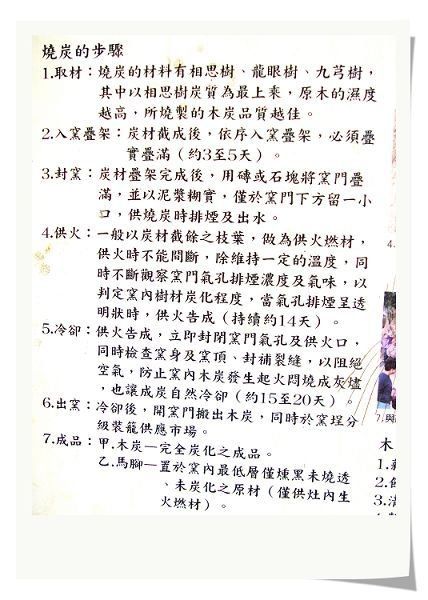 燒炭的步驟
1.取材：燒炭的材料有相思樹、龍眼樹、九芎樹，
其中以相思樹炭質為最上乘，原木的濕度
越高，所燒製的木炭品質越佳。
2.入窯疊架：炭材截成後，依序入窯疊架，必須疊
實疊滿（約3至5天）。
3.封窯：炭材疊架完成後，用磚或石塊將窯門疊
滿，並以泥漿糊實，僅於窯門下方留一小
口，供燒炭時排煙及出水。
4.供火：一般以炭材截餘之枝葉，做為供火燃材，
供火時不能間斷，除維持一定的溫度，同
時不斷觀察窯門氣孔排煙濃度及氣味，以
判定窯內樹材炭化程度，當氣孔排煙呈透
明狀時，供火告成（持續約14天）。
5.冷卻：供火告成，立即封閉窯門氣孔及供火口，
同時檢查窯身及窯頂、封補裂縫，以阻絕
空氣，防止窯內木炭發生起火悶燒成灰燼
，也讓成炭自然冷卻（約15至20天）。
6.出窯：冷卻後，開窯門搬出木炭，同時於窯埕分
級裝簍供應市場。
7.成品：甲.木炭—完全炭化之成品。
乙.馬腳—置於窯內最低層僅燻黑未燒透
、未炭化之原材（僅供灶內生
火燃材）。
4.
7.與
木
1.
2.
3.